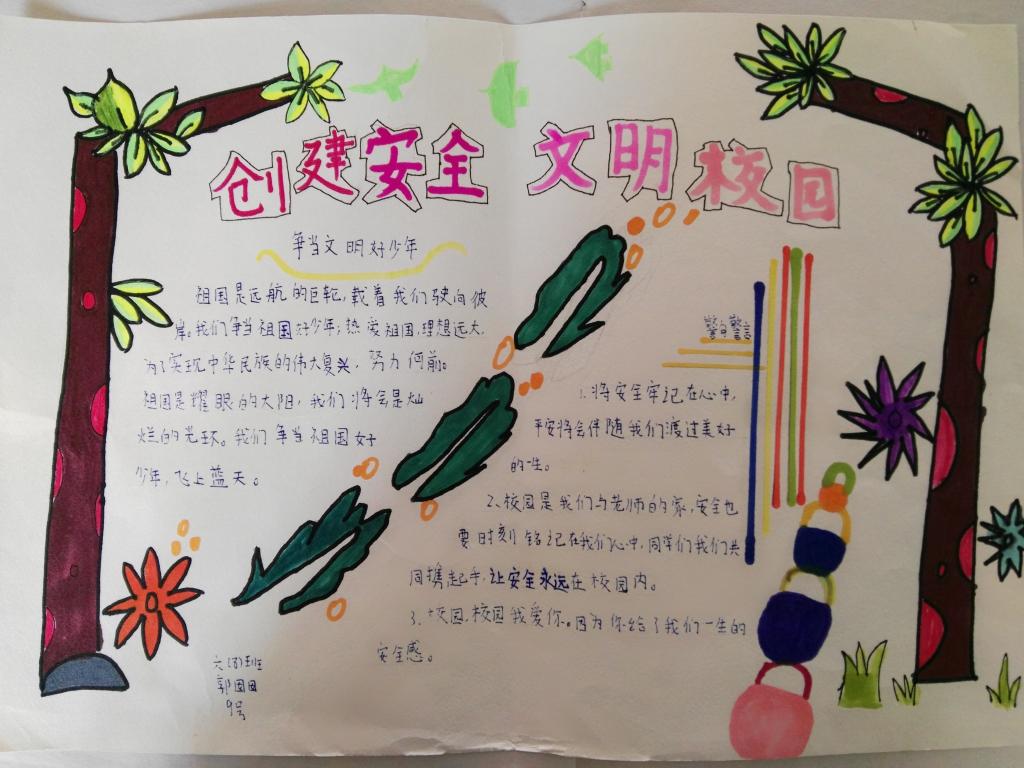 创建安全 文明校园
争当文明好少年
祖国是远航的巨轮，载着我们驶向彼
岸。我们争当祖国好少年；热爱祖国，理想远大，
为了实现中华民族的伟大复兴，努力向前。
祖国是耀眼的太阳，我们将会是灿
烂的光环。我们争当祖国好
少年，飞上蓝天。
警句警言
1、将安全牢记在心中，
平安将会伴随我们渡过美好
的一生。
2、校园是我们与老师的家，安全也
要时刻铭记在我们心中，同学们我们共
同携起手，让安全永远在校园内。
3、校园，校园我爱你。因为你给了我们一生的
安全感。
六（8）班
郭园园
9号